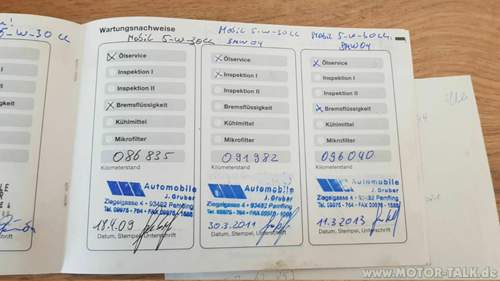 Wartungsnachweise
5-W-30
Mobil 5-W-30
Ölservice
Inspektion I
Inspektion II
Bremsflüssigkeit
Kühlmittel
Mikrofilter
086835
Kilometerstand
Automobile
J. Gruber
Ziegelgasse 4 • 93482 Pemfling
Tel. 09975 - 764 • FAX 09975 -
18.4.09
Datum, Stempel, Unterschrift
Mobil 5-W-30
BMW 04
Ölservice
Inspektion I
Inspektion II
Bremsflüssigkeit
Kühlmittel
Mikrofilter
091982
Kilometerstand
Automobile
J. Gruber
Ziegelgasse 4 • 93482 Pemfling
Tel. 09975 - 764 • FAX 09975 -
30.3.2011
Datum, Stempel, Unterschrift
Mobil 5-W-30
BMW 04
Ölservice
Inspektion I
Inspektion II
Bremsflüssigkeit
Kühlmittel
Mikrofilter
096040
Kilometerstand
Automobile
J. Gruber
Ziegelgasse 4 • 93482 Pemfling
Tel. 09975 - 764 • FAX 09975 -
11.3.2013
Datum, Stempel, Unterschrift
www.MOTOR-TALK.de